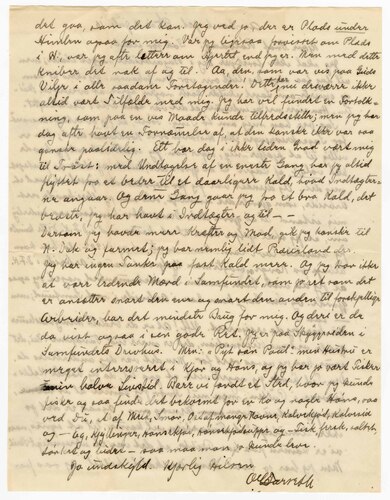 det gaa, som det kan. Jeg ved jo, der er Plads under
Himlen ogsaa for mig. Var jeg ligesaa forvisset om Plads
i N. var jeg ofte lettere om Hjertet end jeg er. Men med dette
kniber det nok af og til. Aa, den, som var vis paa Guds
Vilje i alle saadanne Foretagender. Dette har desværre ikke
altid vært Tilfælde med mig. Jeg har vel fundet en Fortolk-
ning, som paa en vis Maade kunde tilfredsstille; men jeg har
dog ofte havt en Fornemmelse af, at den kanske ikke var saa
ganske paalidelig. Ett har dog i ikke liden Grad vært mig
til Trøst: med Undtagelse af en eneste Gang har jeg altid
flyttet fra et bedre til et daarligere Kald, hvad Indtægter-
ne angaar. Og denne Gang gaar jeg fra et bra Kald, det
bedste, jeg har havt i Indtægter, og til — —
Dersom jeg havde mere Kræfter og Mod, gik jeg kanske til
N. Dak og farmet; jeg har nemlig lidt Prairieland der.
Jeg har ingen Tanke paa fast Kald mere. Og jeg kan ikke
at være ledende Mand i Samfundet, som jo ret som det er
ansætter snart den ene og snart den anden til forskjellige
Arbeider, har det mindste Brug for mig. Og det er de
da vist ogsaa i sin gode Ret. Jeg er paa Skyggesiden i
Samfundets Drivhus. Mrs. "Pyt san Paul" min Hustru er
meget interesseret i Kjør og Høns, og jeg har jo vært Farmer
min halve Livstid. Bare vi fandt et Sted, hvor jeg kunde
fisker og saa finde det bekvemt for en Ko og nogle Høns, saa
ved Du, at af Milk, Smør, Ost af mange Navne, Kalvekjød, Kalvesid
og — Eg, Kyllinger, Hønsekjøn, Hønsekjødsuppe og — Fisk, fersk, saltet,
tørket og ludet — saa maa man jo kunde leve.
Ja undskyld. Hjertlig Hilsen